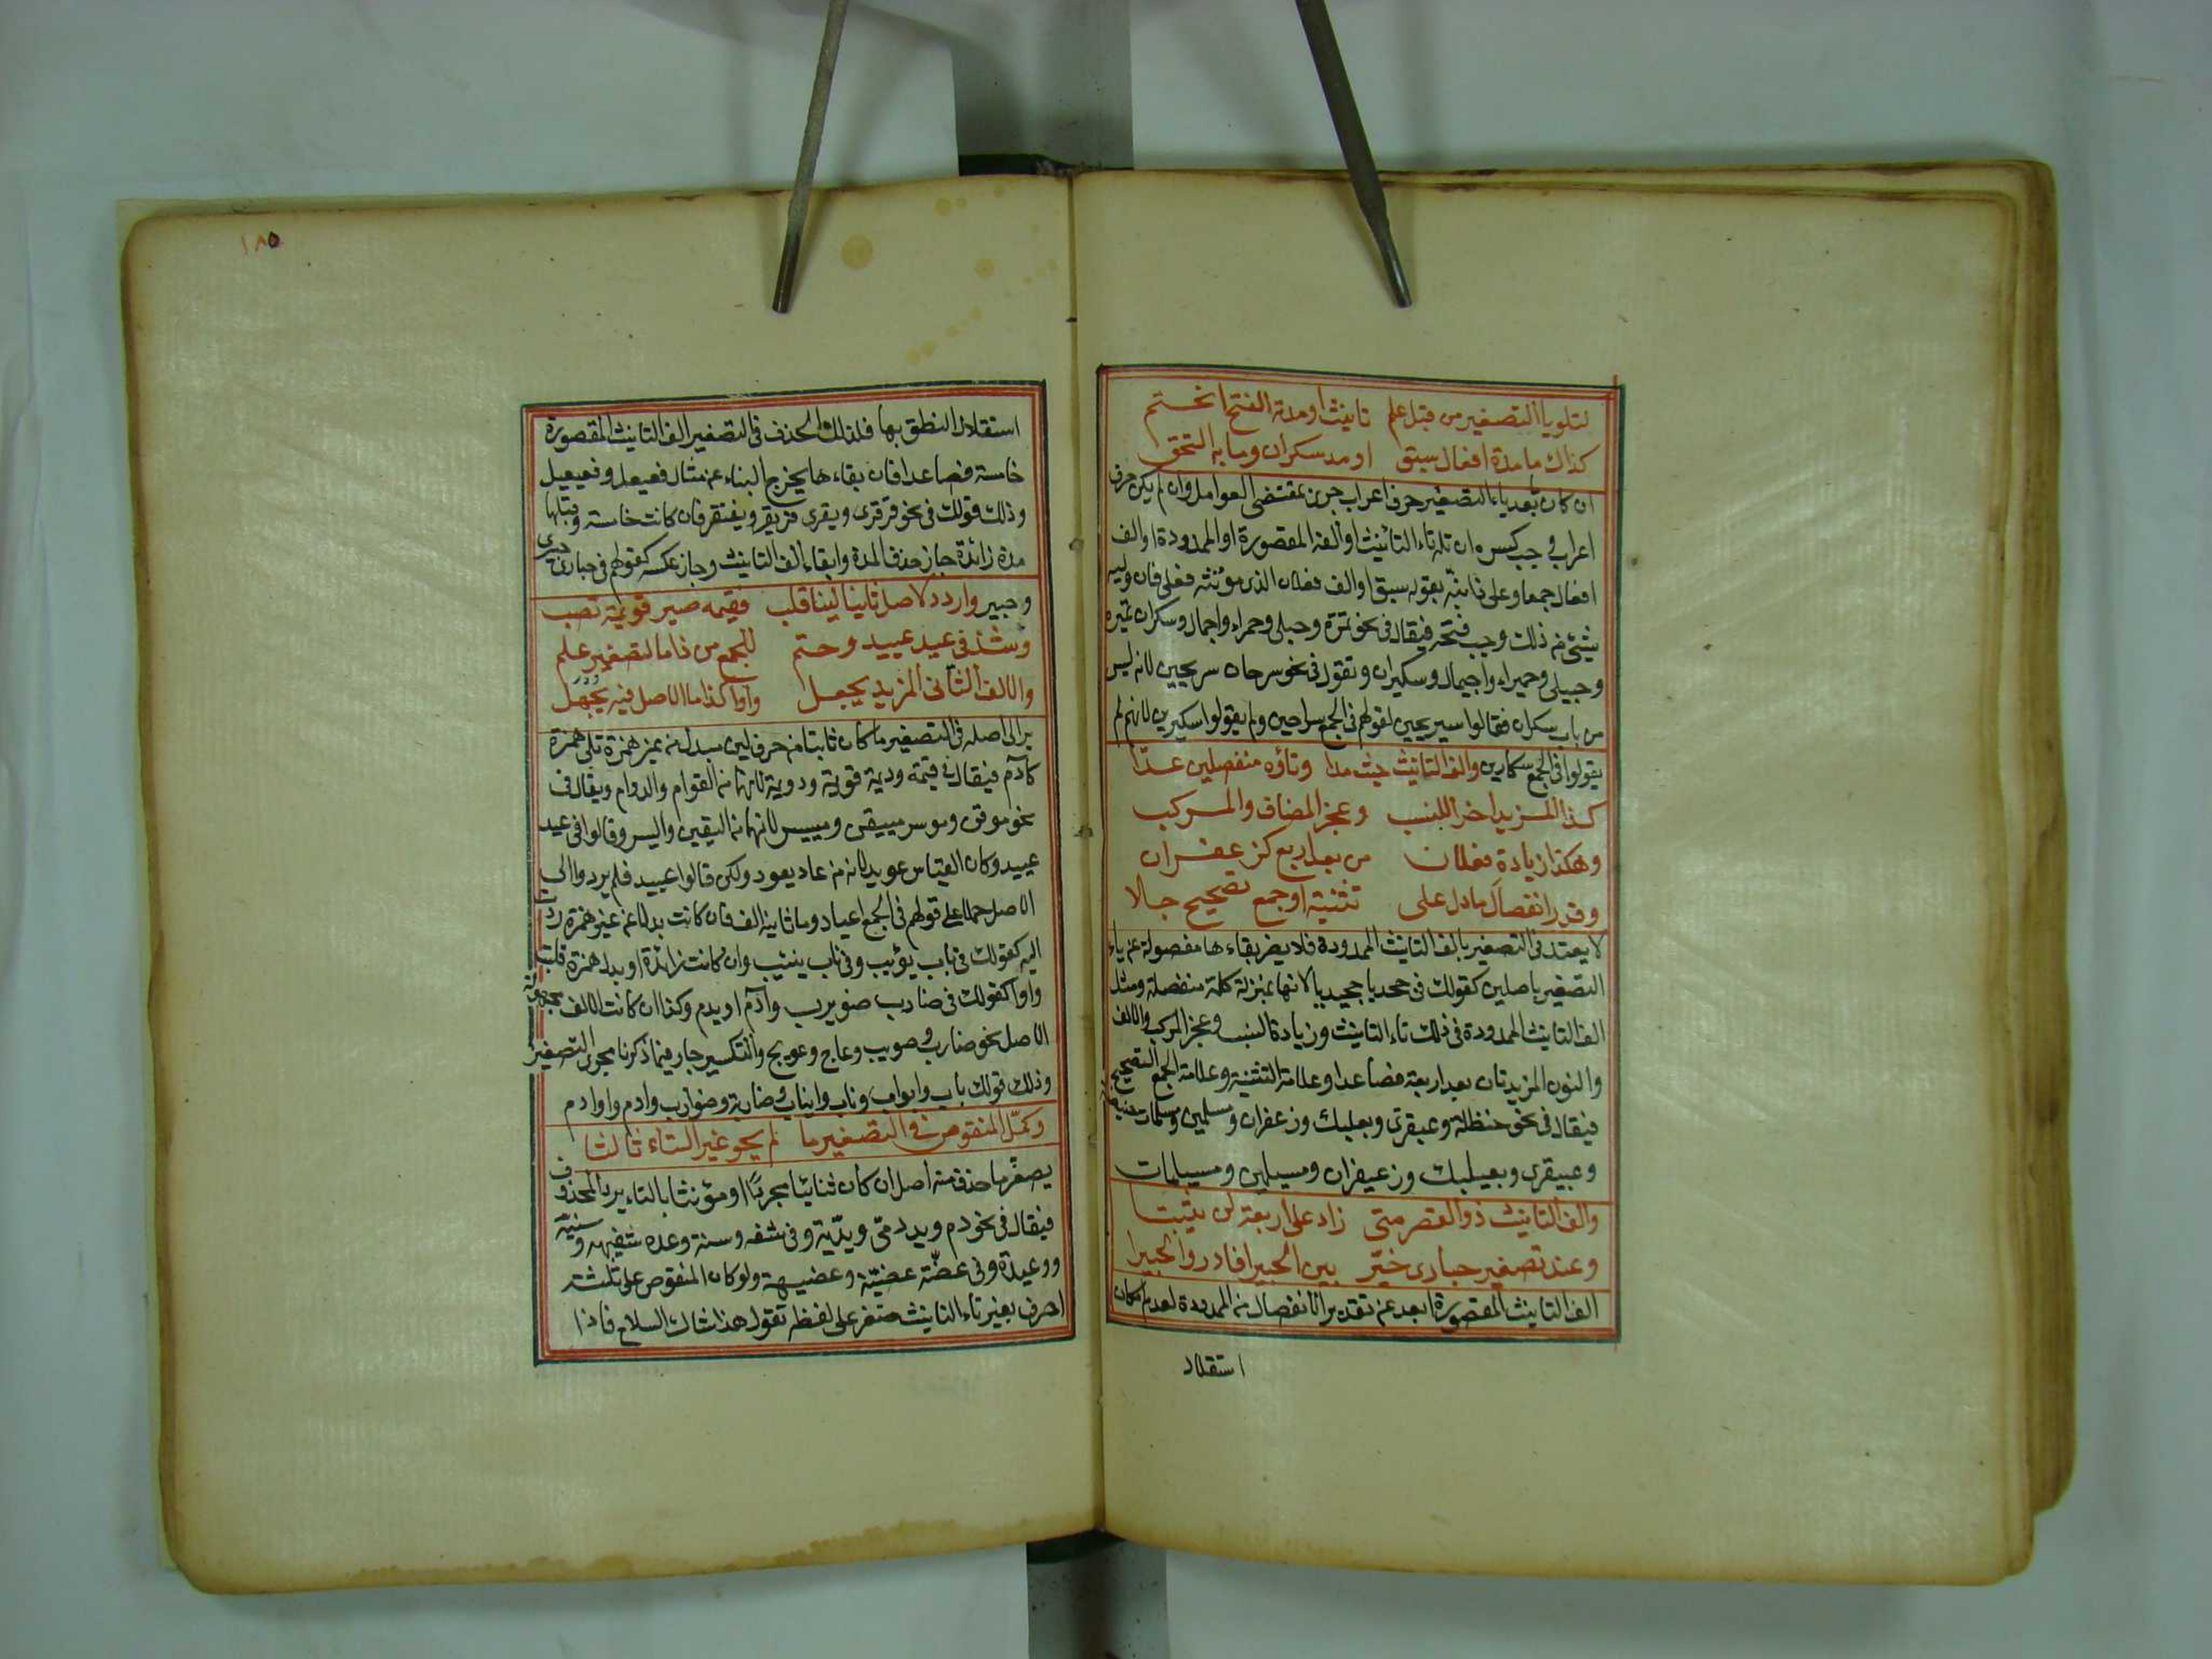 لتلو يا التصغير من قبل علم تانيث او مدته الفتح انحتم
كذاك ما مدة افعال سبق او مد سكران وما به التحق
ان كان بعد ياء التصغير حرف اعراب جرى بمقتضى العوامل وان لم يكن حرف
اعراب وجب كسره ان لم تله تاء التأنيث او الفه المقصورة او الممدودة او الف
افعال جمعا وعلى ذا نبه بقوله سبق او الف فعلان الذى مؤنثه فعلى فان وليه
شئ من ذلك وجب فتحه فيقال فى نحو تمرة وحبلى وحمراء واجمال وسكران تميرة
وحبيلى وحميراء واجيمال وسكيران وتقول فى نحو سرحان سريحين لانه ليس
من باب سكران فقالوا سريحين لقولهم فى الجمع سراحين ولم يقولوا سكيرين لانهم لم
يقولوا فى الجمع سكارين والف التانيث حيث مدا وتاؤه منفصلين عدا
كذا المزيد اخرا للنسب وعجز المضاف والمركب
وهكذا زيادة فعلانا من بعد اربع كزعفران
وقدر انفصال ما دل على تثنية او جمع تصحيح جلا
لا يعتد فى التصغير بالف التانيث الممدودة فلا يضر بقاءها مفصولة عن ياء
التصغير باصلين كقولك فى جحدبا جحيدبا لانها بمنزلة كلمة منفصلة ومثل
الف التانيث الممدودة فى ذلك تاء التانيث وزيادة النسب وعجز المركب والالف
والنون المزيدتان بعد اربعة فصاعدا وعلامة التثنية وعلامة الجمع التصحيح
فيقال فى نحو حنظلة وعبقرى وبعلبك وزعفران ومسلمين ومسلمات حنيظلة
وعبيقرى وبعيلبك وزعيفران ومسيلمين ومسيلمات
والف التانيث ذو القصر متى زاد على اربعة لن يثبتا
وعند تصغير حبارى خير بين الحبيرى فادر والحبير
الف التانيث المقصورة ابعد عن تقدير الانفصال من الممدودة لعدم امكان
استقلال
١٨٥
استقلال النطق بها فلذلك الحذف فى التصغير الف التانيث المقصورة
خامسة فصاعدا فان بقاءها يخرج البناء عن مثال فعيعل وفعيعيل
وذلك قولك فى نحو قرقرى ويقرى قريقر ويفتقر فان كانت خامسة وقبلها
مدة زائدة جاز حذف المدة وابقاء الف التانيث وجاز عكسه كقولهم فى حبارى حبيرى
وحبير واردد لاصل ثانيا لينا قلب فقيمه صير قويمة تصب
وشذ فى عيد عييد وحتم للجمع من ذا ما لتصغير علم
والالف الثانى المزيد يجعل واوا كذا ما الاصل فيه يجهل
يرد الى اصله فى التصغير ما كان ثانيا من حرف لين مبدل من غير همزة تلى همزة
كآدم فيقال فى قيمة وديمة قويمة ودويمة لانهما من القوام والدوام ويقال فى
نحو موقن وموسر مييقن ومييسر لانهما من اليقين واليسر وقالوا فى عيد
عييد وكان القياس عويد لانه من عاد يعود ولكن قالوا عييد فلم يردوا الى
الاصل حملا على قولهم فى الجمع اعياد وما ثانيه الف فان كانت بدلا عن غير همزة رد
اليه كقولك فى باب بويب وفى ناب نييب وان كانت زائدة او بدل همزة قلبت
واوا كقولك فى ضارب ضويرب وآدم اويدم وكذا ان كانت الالف مجهولة
الاصل نحو ضارب وصويب وعاج وعويج والتكسير جار فيما ذكرنا مجرى التصغير
وذلك قولك باب وابواب وناب وانياب وضاربة وضوارب وادم واوادم
وكمل المنقوص فى التصغير ما لم يحو غير التاء ثالثا
يصغر ما حذف منه اصل ان كان ثنائيا مجردا او مؤنثا بالتاء يرد المحذوف
فيقال فى نحو دم ويد دمى ويدية وفى شفه وسنة وعده شفيهه وسنية
ووعيدة وفى عضة عضية وعضيهة ولو كان المنقوص على ثلثة
احرف بغير تاء التانيث صغر على لفظه تقول هذا شاك السلاح فاذا